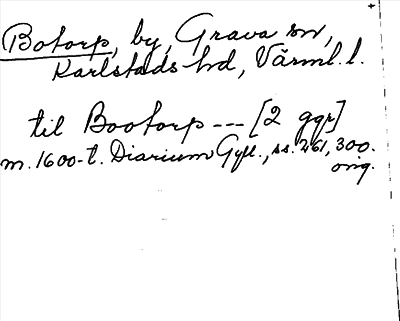 Botorp, by, Grava sn,
Karlstads hd, Värml. l.
til Bootorp --- [2 ggr]
m. 1600-t. Diarium Gyll., ss. 261, 300.
orig.